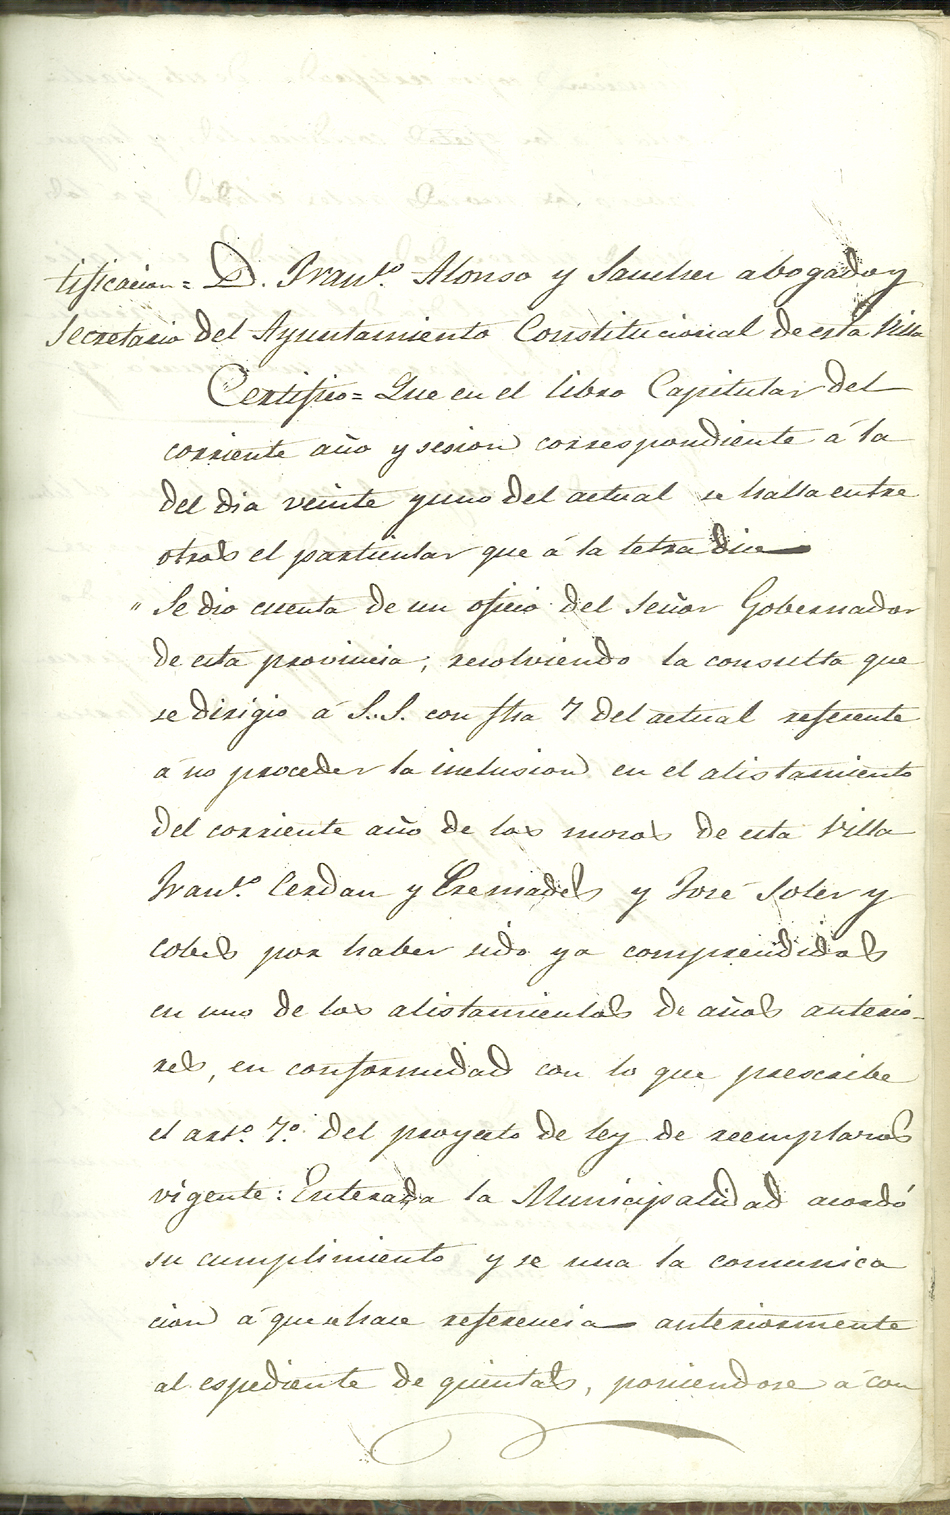 tificacion = D. Fran.co Alonso y Sanchez abogado y
Secretario del Ayuntamiento Constitucional de esta Villa
Certifico = Que en el libro Capitular del
corriente año y sesion correspondiente á la
del dia veinte y uno del actual se halla entre
otros el particular que á la letra dice
" Se dio cuenta de un oficio del Señor Gobernador
de esta provincia, resolviendo la consulta que
se dirigio á S.S. con fha 7 del actual referente
á no proceder la inclusion en el alistamiento
del corriente año de los mozos de esta Villa
Fran.co Cerdan y Cremades y José Soler y
Cobes por haber sido ya comprendidos
en uno de los alistamientos de años anterio-
res, en conformidad con lo que prescribe
el arto. 7o. del proyecto de ley de reemplazos
vigente: Enterada la Municipalidad acordó
su cumplimiento y se una la comunica
cion á que se hace referencia anteriormente
al espediente de quintas, poniendose á con